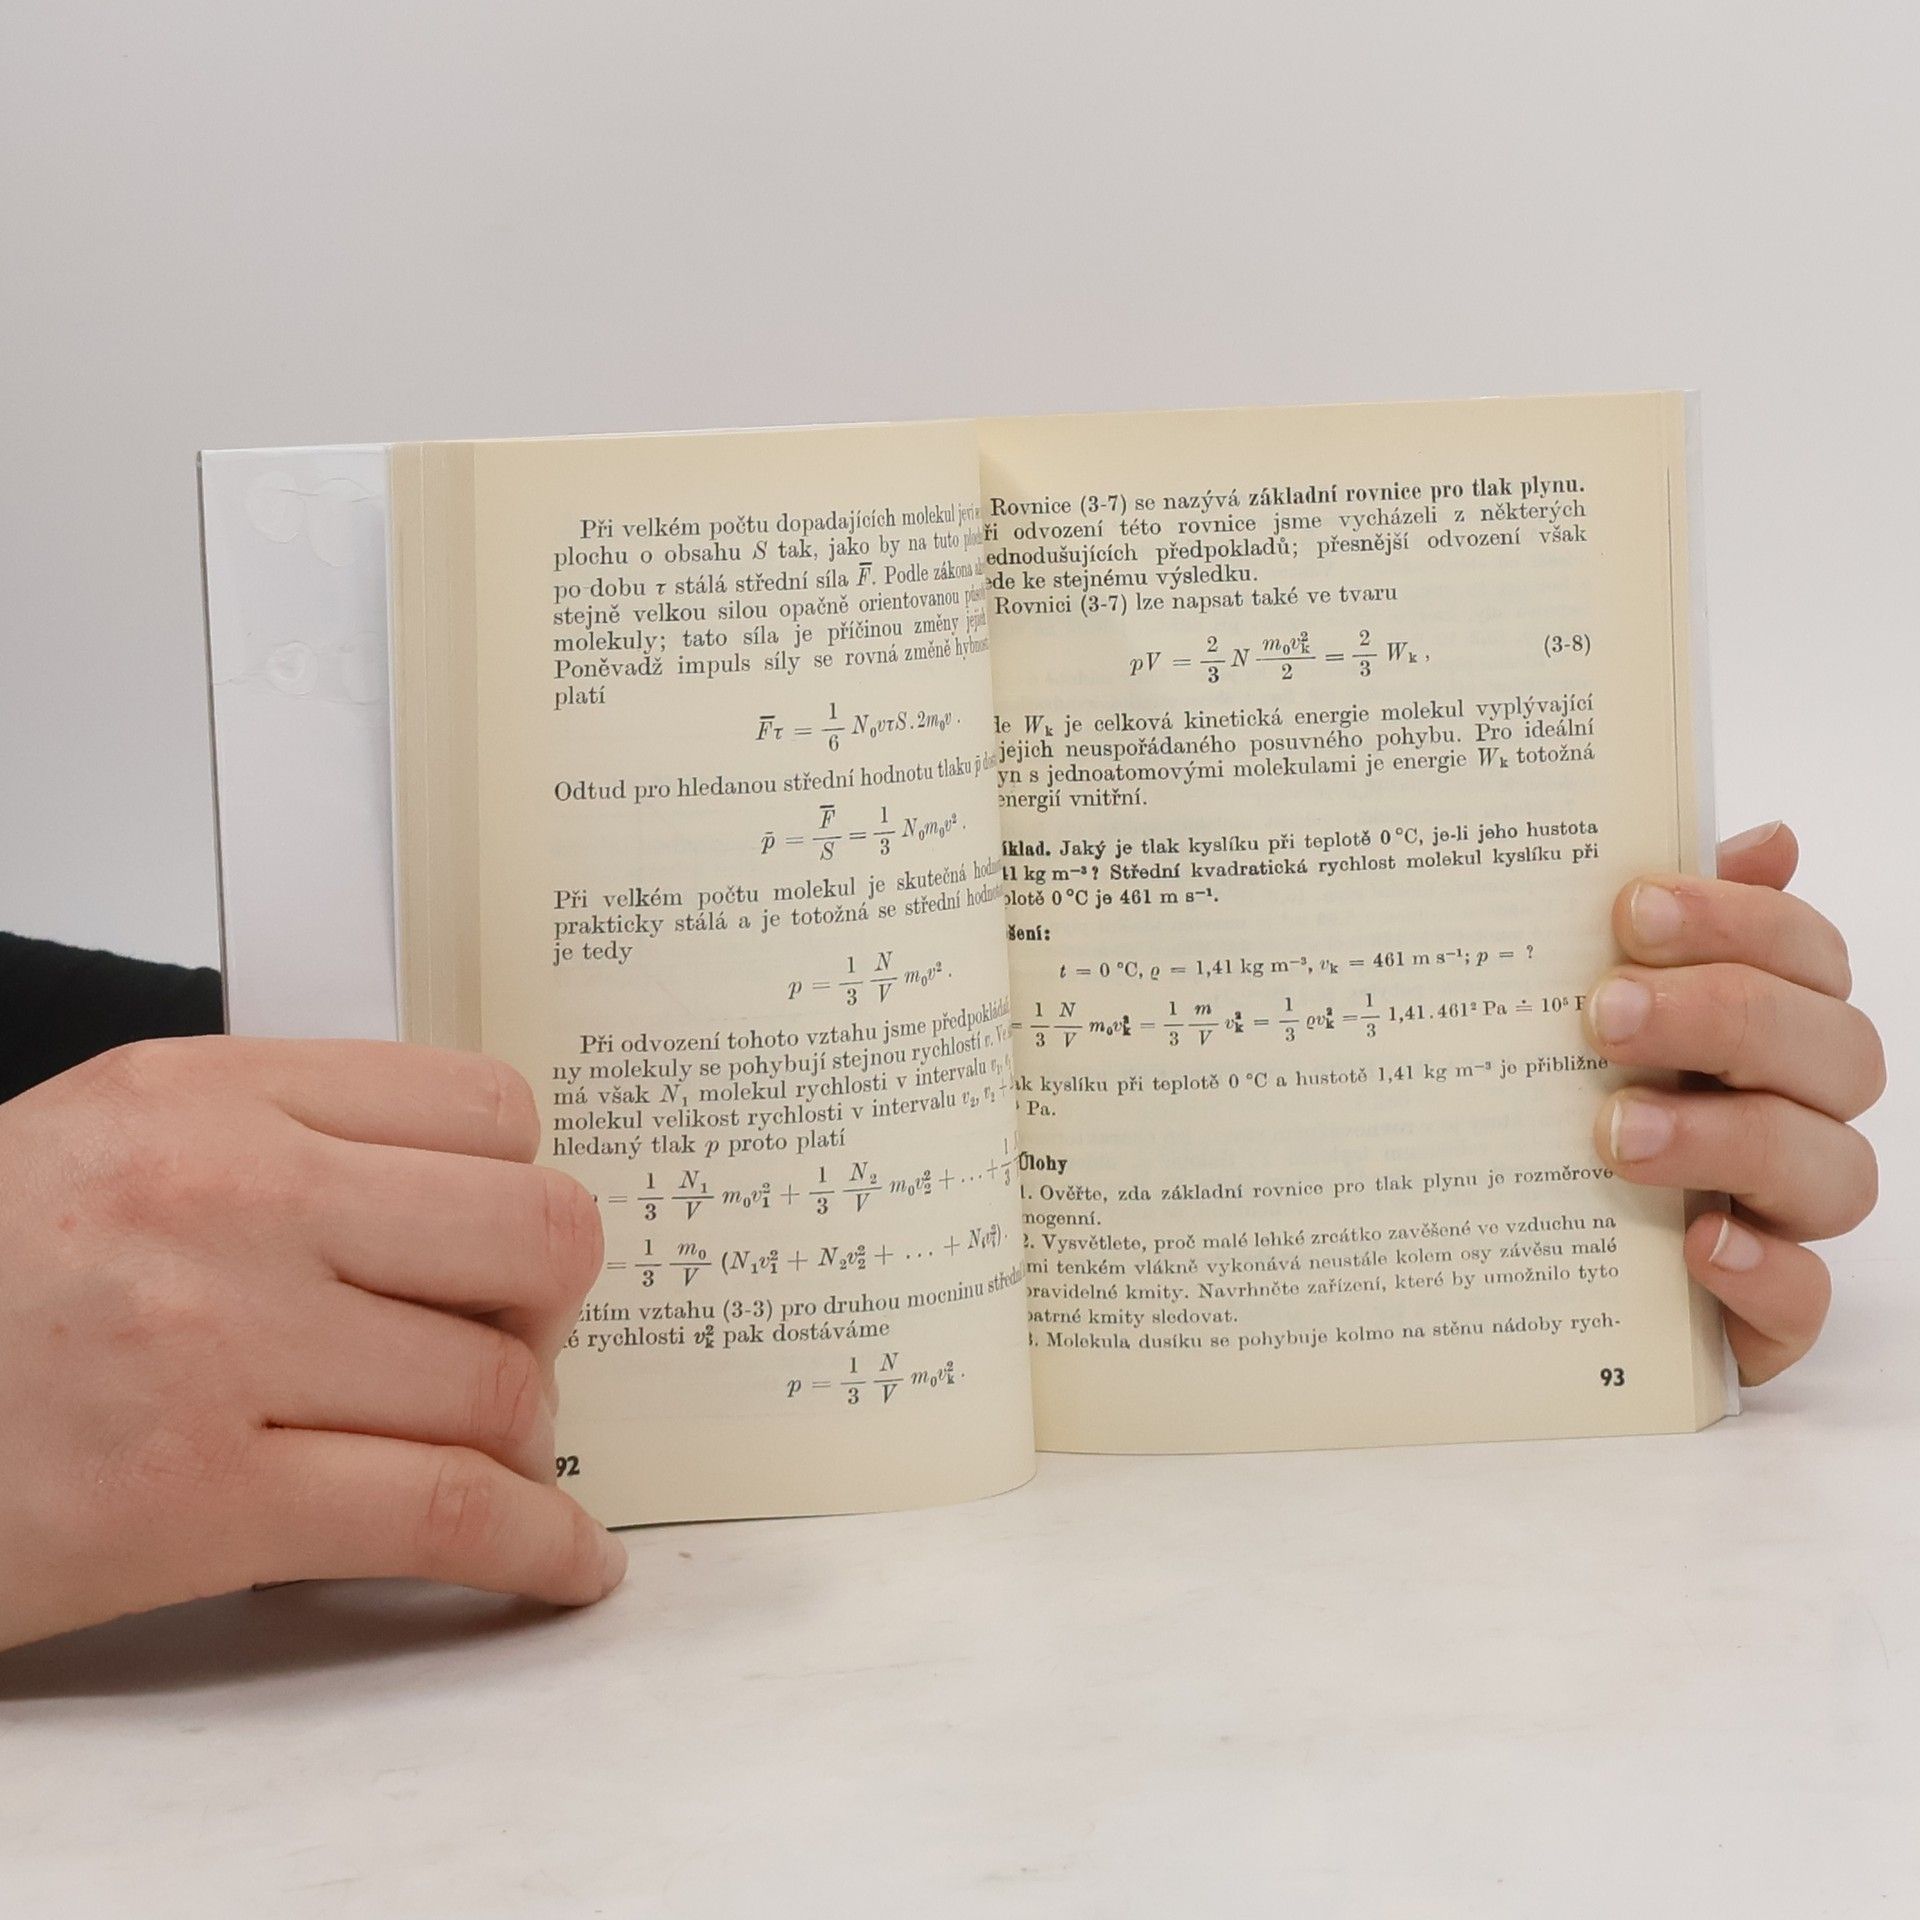 Při velkém počtu dopadajících molekul
plochu o obsahu S tak, jako by na tuto
po dobu τ stálá střední síla F̅. Podle zákona
stejně velkou silou opačně orientovanou
molekuly; tato síla je příčinou změny
Poněvadž impuls síly se rovná změně
platí
F̅τ = 1/6 N₀vτS . 2m₀v .
Odtud pro hledanou střední hodnotu tlaku p̄
p̄ = F̅/S = 1/3 N₀m₀v² .
Při velkém počtu molekul je skutečná
prakticky stálá a je totožná se střední
je tedy
p = 1/3 N/V m₀v² .
Při odvození tohoto vztahu jsme
ny molekuly se pohybují stejnou rychlostí v.
má však N₁ molekul rychlosti v intervalu
molekul velikost rychlosti v intervalu v₂, v₂ +
hledaný tlak p proto platí
= 1/3 N₁/V m₀v₁² + 1/3 N₂/V m₀v₂² + ... + 1/3
= 1/3 m₀/V (N₁v₁² + N₂v₂² + ... +
vztahu (3-3) pro druhou mocninu
rychlosti vₖ² pak dostáváme
p = 1/3 N/V m₀vₖ² .
92
Rovnice (3-7) se nazývá základní rovnice pro tlak plynu.
odvození této rovnice jsme vycházeli z některých
předpokladů; přesnější odvození však
ke stejnému výsledku.
Rovnici (3-7) lze napsat také ve tvaru
pV = 2/3 N m₀vₖ²/2 = 2/3 Wₖ , (3-8)
Wₖ je celková kinetická energie molekul vyplývající
jejich neuspořádaného posuvného pohybu. Pro ideální
s jednoatomovými molekulami je energie Wₖ totožná
energií vnitřní.
Jaký je tlak kyslíku při teplotě 0 °C, je-li jeho hustota
kg m⁻³? Střední kvadratická rychlost molekul kyslíku při
0 °C je 461 m s⁻¹.
t = 0 °C, ϱ = 1,41 kg m⁻³, vₖ = 461 m s⁻¹; p = ?
= 1/3 N/V m₀vₖ² = 1/3 m/V vₖ² = 1/3 ϱvₖ² = 1/3 1,41 . 461² Pa ≐ 10⁵
kyslíku při teplotě 0 °C a hustotě 1,41 kg m⁻³ je přibližně
Pa.
Úlohy
1. Ověřte, zda základní rovnice pro tlak plynu je rozměrově
2. Vysvětlete, proč malé lehké zrcátko zavěšené ve vzduchu na
tenkém vlákně vykonává neustále kolem osy závěsu malé
kmity. Navrhněte zařízení, které by umožnilo tyto
kmity sledovat.
3. Molekula dusíku se pohybuje kolmo na stěnu nádoby rych-
93